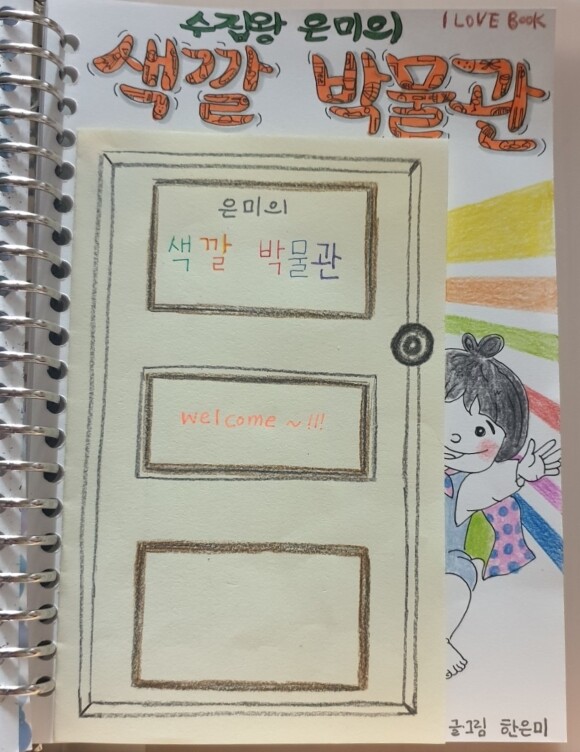 수집왕 은미의
I LOVE BOOK
색깔 박물관
은미의
색깔 박물관
welcome ~!!!
글·그림 한은미